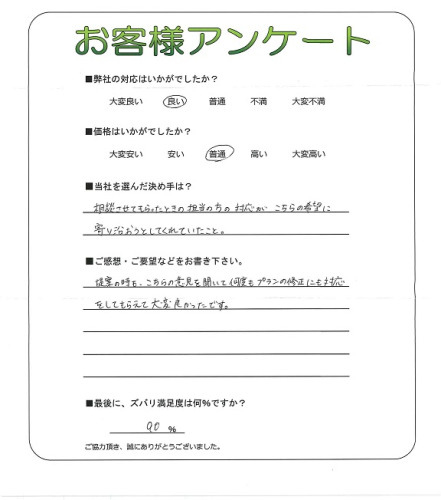 お客様アンケート
■弊社の対応はいかがでしたか?
大変良い 良い 普通 不満 大変不満
■価格はいかがでしたか?
大変安い 安い 普通 高い 大変高い
■当社を選んだ決め手は?
相談させてもらったときの担当の方の対応が、こちらの希望に
寄り沿おうとしてくれていたこと。
■ご感想・ご要望などをお書き下さい。
提案の時も、こちらの意見を聞いて何度もプランの修正にも対応
をしてもらえて大変良かったです。
■最後に、ズバリ満足度は何%ですか?
90 %
ご協力頂き、誠にありがとうございました。